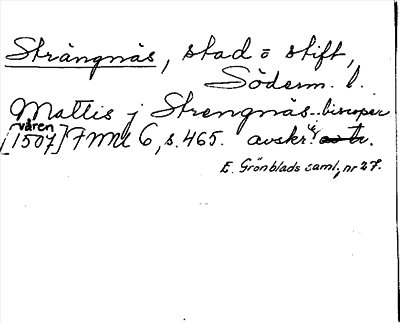 Strängnäs, stad o stift,
Söderm. l.
Mattis j Strengnäs.. biscoper
våren
[1507] FMU 6, s. 465. avskr.
E. Grönblads saml., nr 27.